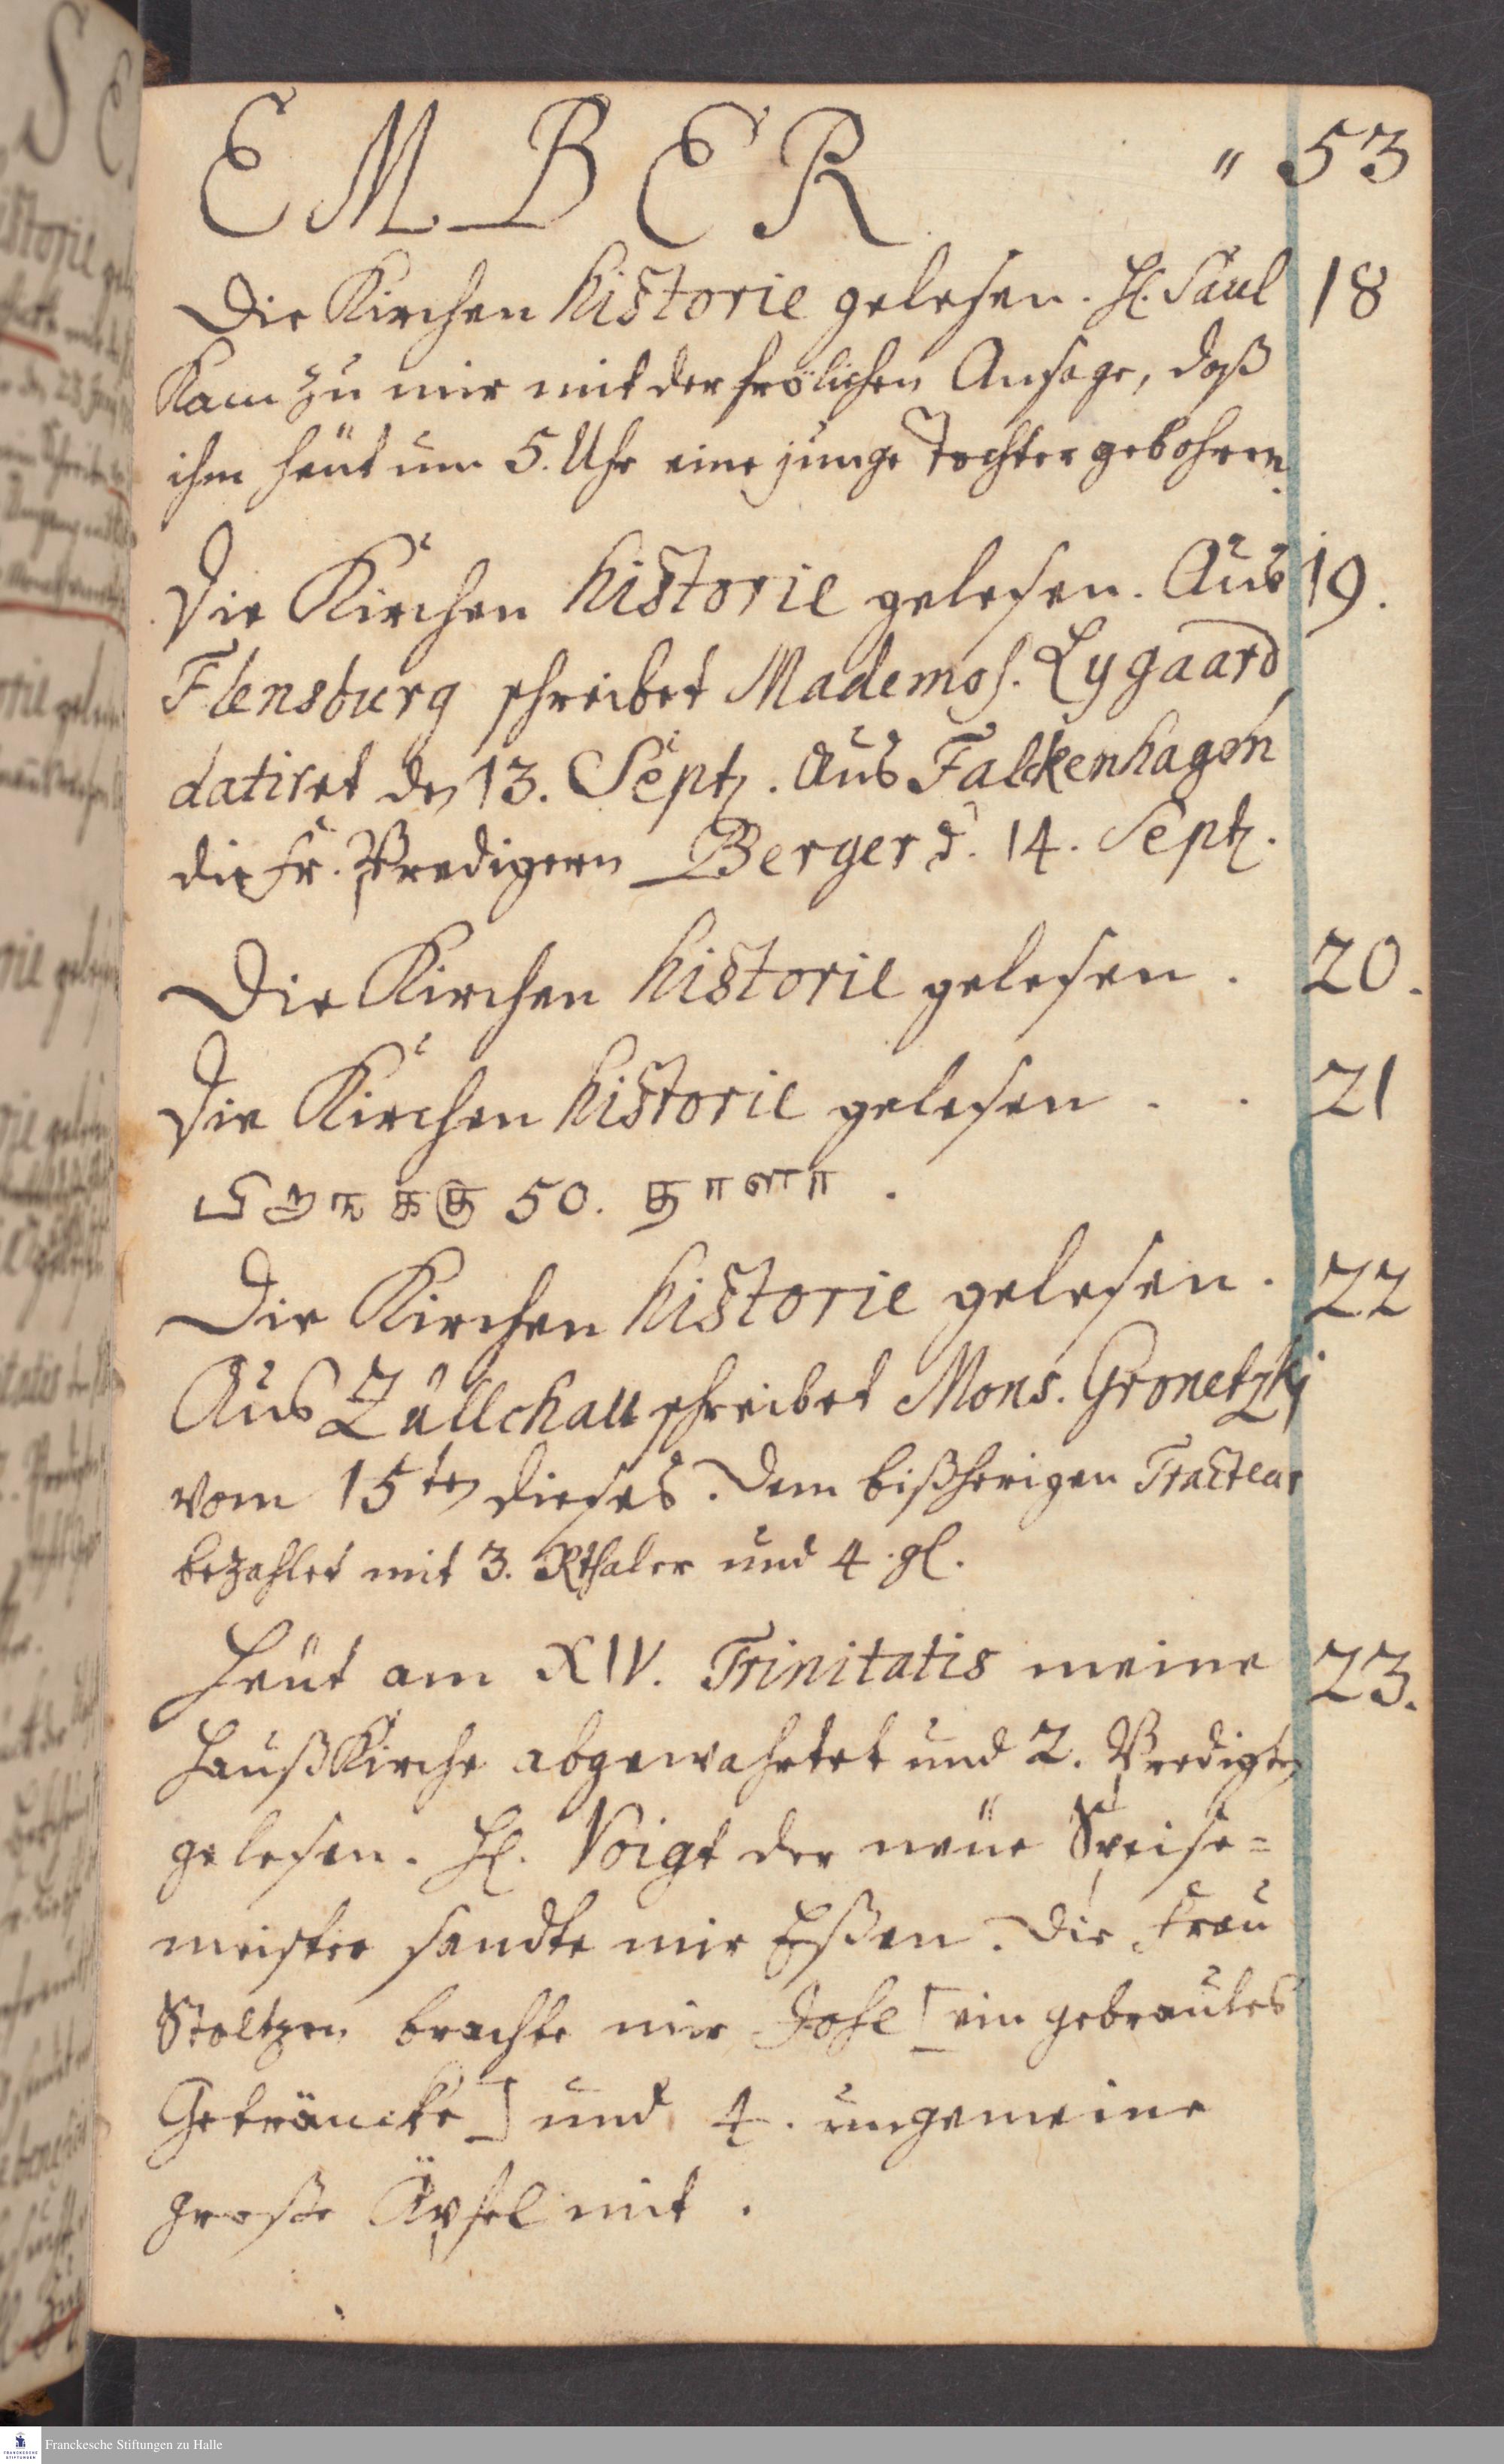 EMBER " 53
Die Kirchen historie gelesen. H. Saul 18
Kam zu mir mit der frölichen Ansage, daß
ihm heüt um 5. Uhr eine junge Tochter gebohren.
Die Kirchen historie gelesen. Aus 19.
Flensburg schreibet Mademos. Lygaard
datiret den 13. Septr. Aus Falckenhagen
die Fr. Predigern Berger d. 14. Septr.
Die Kirchen historie gelesen. 20.
Die Kirchen historie gelesen . . 21
50. தானா .
Die Kirchen historie gelesen. 22
Aus Züllchau schreibet Mons. Gronetzkj
vom 15ten dieses. Dem bißherigen Tracteur
bezahlet mit 3. Rthaler und 4. gl.
Heüt am XIV. Trinitatis meine 23.
HaußKirche abgewahrtet und 2. Predigten
gelesen. H. Voigt der neüe Speise=
meister sandte mir Eßen. Die Frau
Stoltzen brachte mir Gose [ein gebrautes
Geträncke] und 4. ungemeine
große Äpfel mit.
Franckesche Stiftungen zu Halle